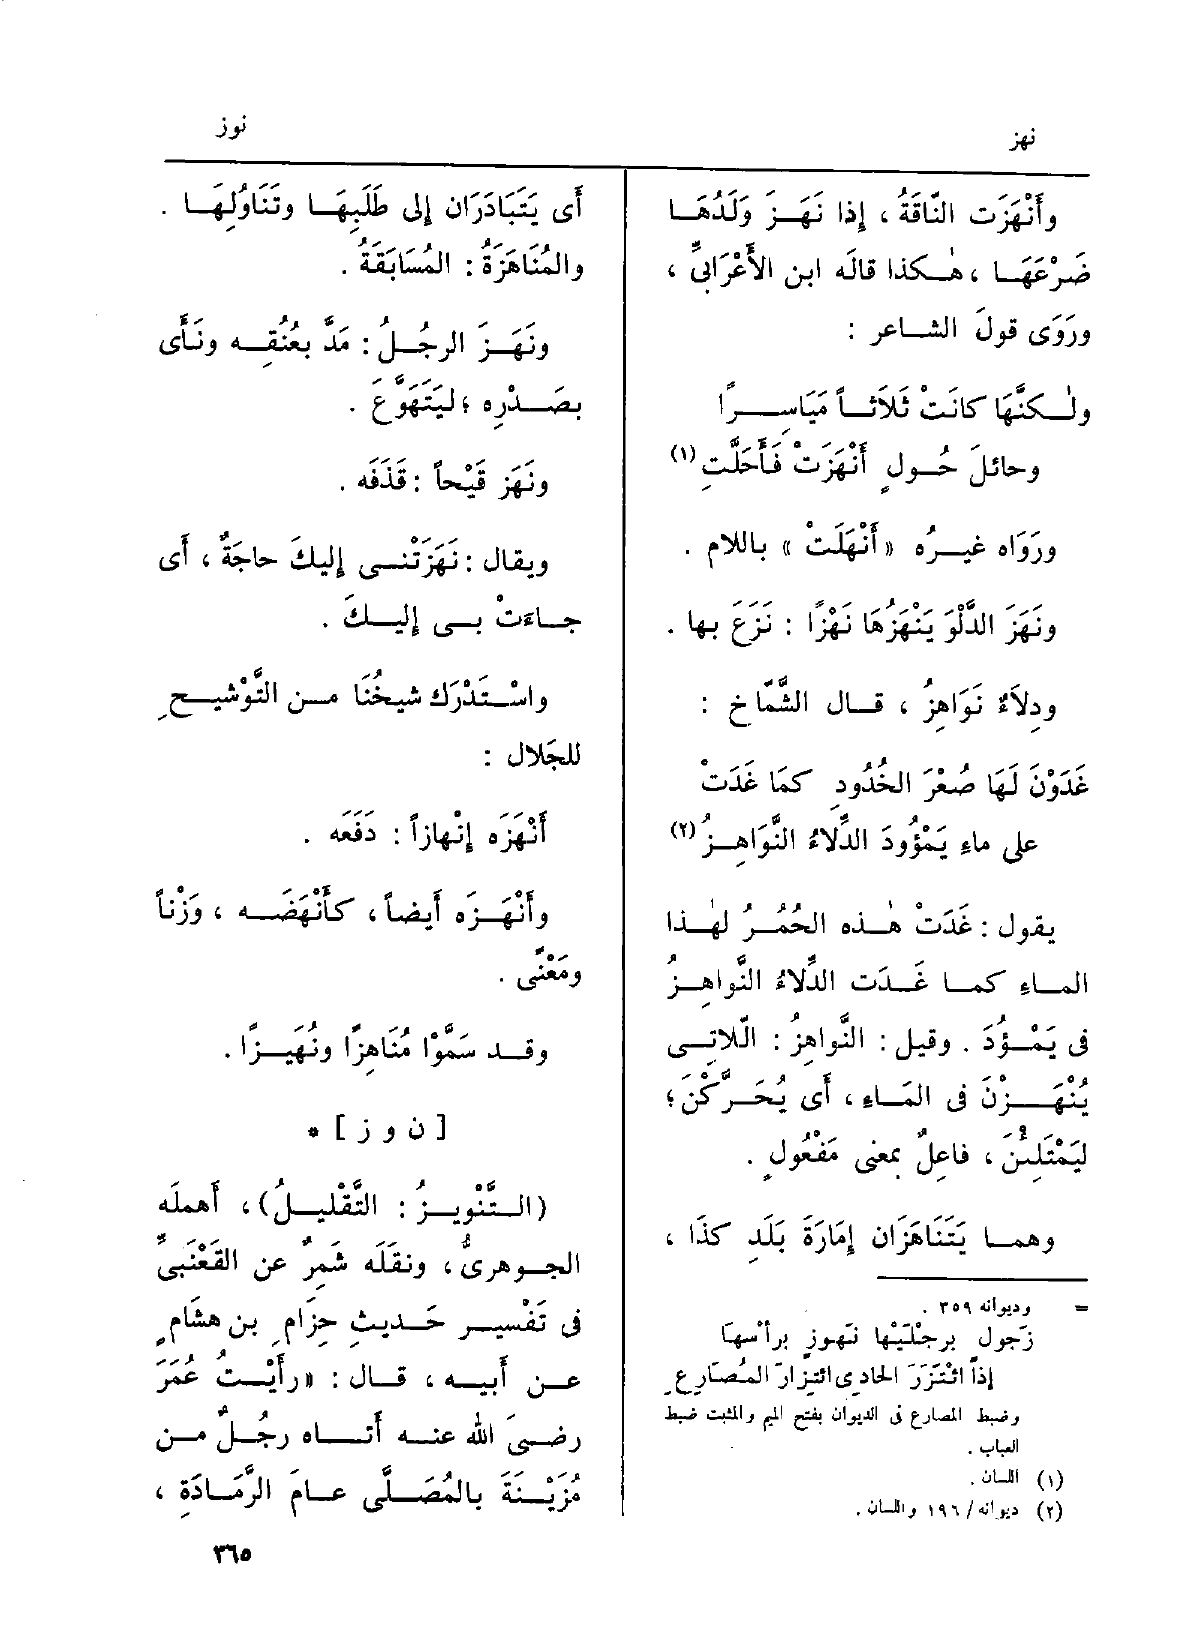 نهز
نوز
وأَنْهَزَت النّاقَةُ ، إِذا نَهَـزَ وَلَدُهَـا
ضَرْعَهَـا ، هٰـكذا قالَه ابن الأَعْرَابِيُّ ،
ورَوَى قولَ الشـاعر :
ولٰـكنَّهَا كانَتْ ثَلَاثـاً مَيَاسِـرًا
وحائلَ حُـولٍ أَنْهَزَتْ فَأَحَلَّتِ (١)
ورَوَاه غيـرُه «أَنْهَلَتْ» باللام .
ونَهَزَ الدَّلْوَ يَنْهَزُهَا نَهْزًا : نَزَعَ بها .
ودِلَاءٌ نَوَاهِزُ ، قـال الشَّمّاخ :
غَدَوْنَ لَهَا صُعْرَ الخُدُودِ كمَا غَدَتْ
على ماءِ يَمْؤُودَ الدِّلاءُ النَّوَاهِـزُ (٢)
يقول : غَدَتْ هٰـذه الحُمُـرُ لهٰـذا
المـاءِ كمـا غَـدَت الدِّلاءُ النَّواهـزُ
فى يَمْـؤُدَ . وقيل : النَّواهِزُ : اللّاتِـى
يُنْهَـزْنَ فى المَـاءِ ، أَى يُحَـرَّكْنَ ؛
ليَمْتَلِئْنَ ، فاعِلٌ بمعنى مَفْعُولٍ .
وهمـا يَتَنَاهَزَان إِمَارَةَ بَلَدِ كذَا ،
= وديوانه ٣٥٩ .
زَجول برجْلَيْها نَهوزٍ برأْسها
إذا ائْتَزَرَ الحادِى ائتزارَ المُصَارِعِ
وضبط المصارع فى الديوان بفتح الميم والمثبت ضبط
العباب .
(١) اللسان .
(٢) ديوانه / ١٩٦ واللسان .
أَى يَتَبَادَرَان إِلى طَلَبِهَـا وتَنَاوُلِهَـا .
والمُنَاهَزَةُ : المُسَابَقَةُ .
ونَهَـزَ الرجُـلُ : مَدَّ بعُنُقِـه ونَأَى
بصَـدْرِه ؛ ليَتَهَوَّعَ .
ونَهَز قَيْحاً : قَذَفَه .
ويقال : نَهَزَتْنـى إِليكَ حاجَةٌ ، أَى
جـاءَتْ بـى إِليـكَ .
واسْـتَدْرَك شيخُنَا مـن التَّوْشيـحِ
للجَلال :
أَنْهَزَه إِنْهازاً : دَفَعَه .
وأَنْهَـزَه أَيضـاً ، كأَنْهَضَـه ، وَزْناً
ومَعْنًى .
وقـد سَمَّوْا مُنَاهِزًا ونُهَيـزًا .
[ ن و ز ] *
(التَّنْوِيـزُ : التَّقْلِيـلُ) ، أَهمله
الجـوهرىُّ ، ونقلَه شَمِرٌ عن القَعْنَبِىِّ
فى تَفْسِيـر حَـديثِ حِزَامِ بن هشَامٍ
عـن أَبيـه ، قـال : «رأَيْـتُ عُمَرَ
رضـىَ الله عنـه أَتـاه رجُـلٌ مـن
مُزَيْـنَةَ بالمُصَـلَّى عـامَ الرَّمَـادَةِ ،
٣٦٥